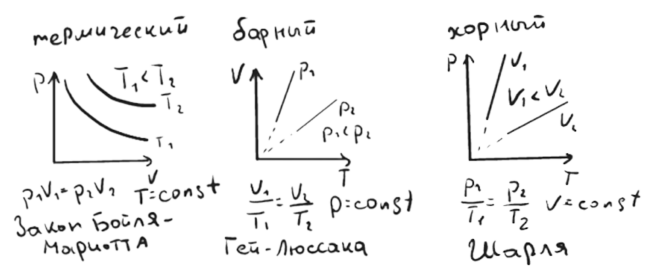 термический
P
T₁ < T₂
T₂
T₁
V
p₁V₁ = p₂V₂ T=const
Закон Бойля-
Мариотта
барный
V
p₁
p₂
p₁ < p₂
T
V₁/T₁ = V₂/T₂ p=const
Гей-Люссака
хорный
P
V₁
V₁ < V₂
V₂
T
p₁/T₁ = p₂/T₂ V=const
Шарля